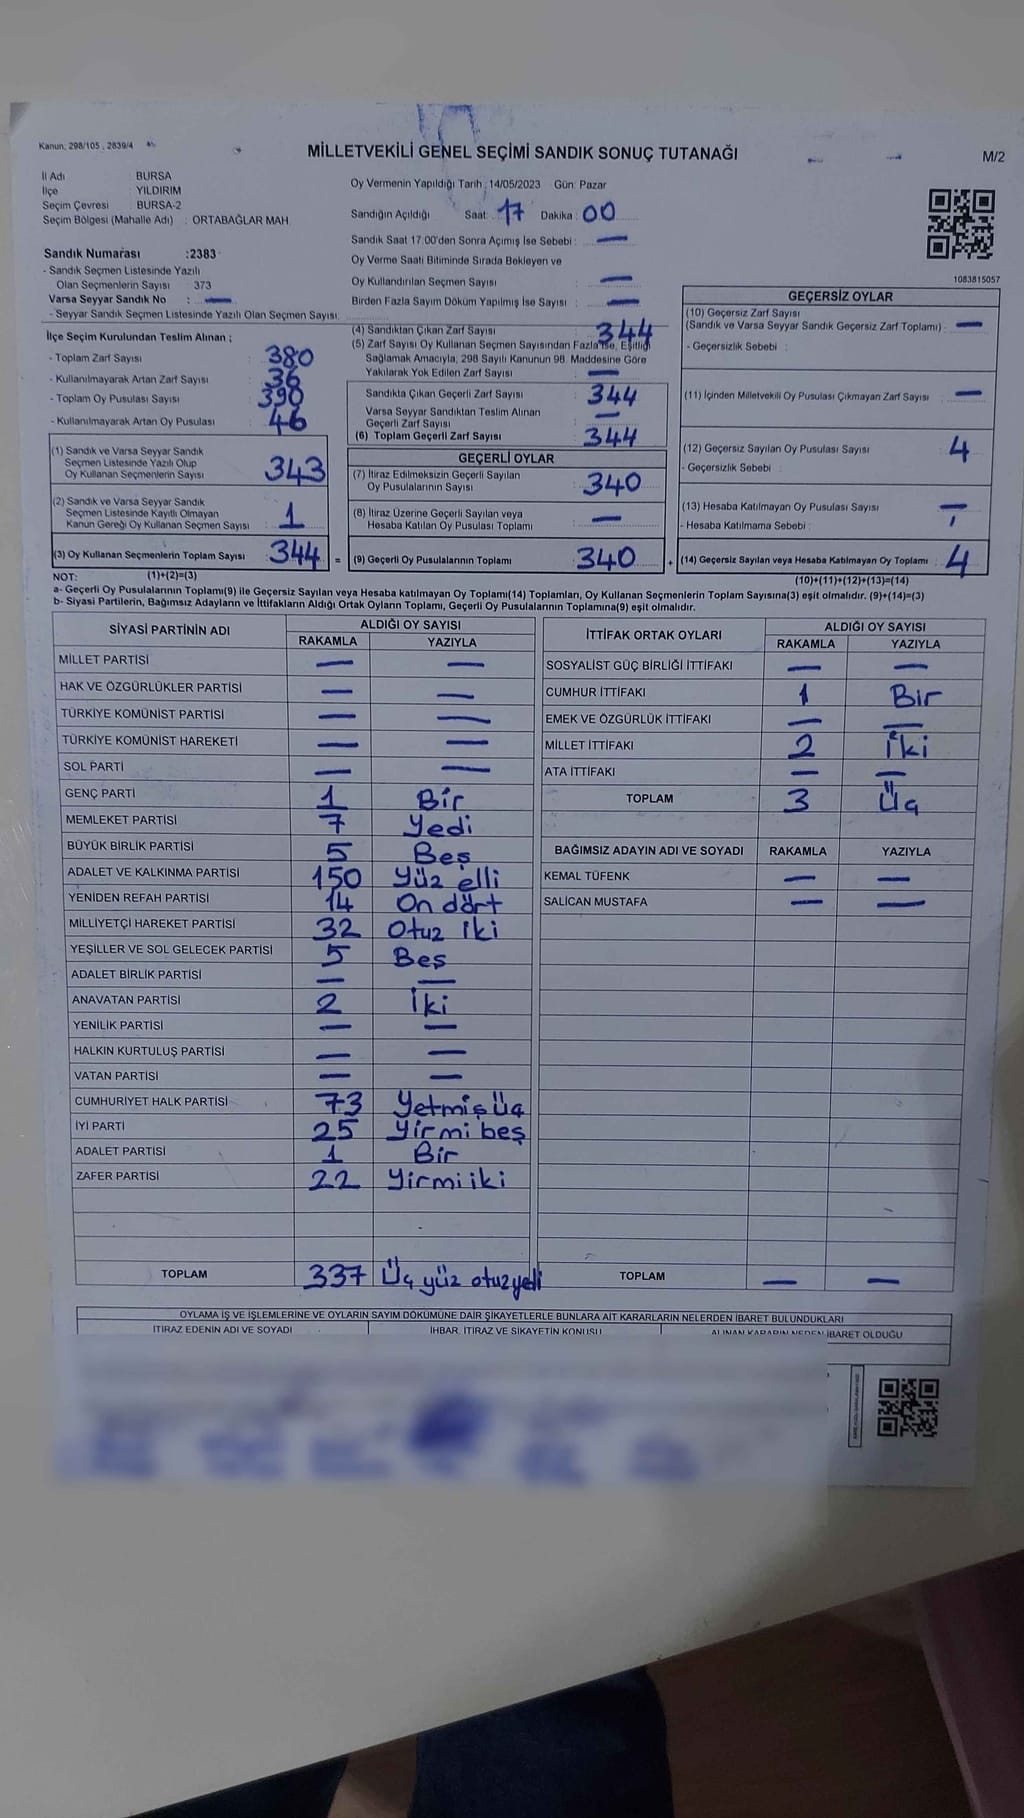 Kanun, 298/105 , 2839/4
MİLLETVEKİLİ GENEL SEÇİMİ SANDIK SONUÇ TUTANAĞI
M/2
İl Adı : BURSA
İlçe : YILDIRIM
Seçim Çevresi : BURSA-2
Seçim Bölgesi (Mahalle Adı) : ORTABAĞLAR MAH.
Sandık Numarası :2383
- Sandık Seçmen Listesinde Yazılı
Olan Seçmenlerin Sayısı : 373
Varsa Seyyar Sandık No : —
- Seyyar Sandık Seçmen Listesinde Yazılı Olan Seçmen Sayısı:
İlçe Seçim Kurulundan Teslim Alınan ;
- Toplam Zarf Sayısı : 380
- Kullanılmayarak Artan Zarf Sayısı : 36
- Toplam Oy Pusulası Sayısı : 390
- Kullanılmayarak Artan Oy Pusulası : 46
(1) Sandık ve Varsa Seyyar Sandık
Seçmen Listesinde Yazılı Olup
Oy Kullanan Seçmenlerin Sayısı : 343
(2) Sandık ve Varsa Seyyar Sandık
Seçmen Listesinde Kayıtlı Olmayan
Kanun Gereği Oy Kullanan Seçmen Sayısı : 1
(3) Oy Kullanan Seçmenlerin Toplam Sayısı : 344 =
(1)+(2)=(3)
Oy Vermenin Yapıldığı Tarih : 14/05/2023 Gün: Pazar
Sandığın Açıldığı Saat: 17 Dakika : 00
Sandık Saat 17:00'den Sonra Açımış İse Sebebi : —
Oy Verme Saati Bitiminde Sırada Bekleyen ve
Oy Kullandırılan Seçmen Sayısı : —
Birden Fazla Sayım Döküm Yapılmış İse Sayısı : —
(4) Sandıktan Çıkan Zarf Sayısı : 344
(5) Zarf Sayısı Oy Kullanan Seçmen Sayısından Fazla İse, Eşitliği
Sağlamak Amacıyla, 298 Sayılı Kanunun 98. Maddesine Göre
Yakılarak Yok Edilen Zarf Sayısı : —
Sandıkta Çıkan Geçerli Zarf Sayısı : 344
Varsa Seyyar Sandıktan Teslim Alınan
Geçerli Zarf Sayısı : —
(6) Toplam Geçerli Zarf Sayısı : 344
GEÇERLİ OYLAR
(7) İtiraz Edilmeksizin Geçerli Sayılan
Oy Pusulalarının Sayısı : 340
(8) İtiraz Üzerine Geçerli Sayılan veya
Hesaba Katılan Oy Pusulası Toplamı : —
(9) Geçerli Oy Pusulalarının Toplamı : 340 +
1083815057
GEÇERSİZ OYLAR
(10) Geçersiz Zarf Sayısı
(Sandık ve Varsa Seyyar Sandık Geçersiz Zarf Toplamı) : —
- Geçersizlik Sebebi :
(11) İçinden Milletvekili Oy Pusulası Çıkmayan Zarf Sayısı : —
(12) Geçersiz Sayılan Oy Pusulası Sayısı : 4
- Geçersizlik Sebebi :
(13) Hesaba Katılmayan Oy Pusulası Sayısı : —
- Hesaba Katılmama Sebebi :
(14) Geçersiz Sayılan veya Hesaba Katılmayan Oy Toplamı : 4
(10)+(11)+(12)+(13)=(14)
NOT:
a- Geçerli Oy Pusulalarının Toplamı(9) ile Geçersiz Sayılan veya Hesaba katılmayan Oy Toplamı(14) Toplamları, Oy Kullanan Seçmenlerin Toplam Sayısına(3) eşit olmalıdır. (9)+(14)=(3)
b- Siyasi Partilerin, Bağımsız Adayların ve İttifakların Aldığı Ortak Oyların Toplamı, Geçerli Oy Pusulalarının Toplamına(9) eşit olmalıdır.
SİYASİ PARTİNİN ADI ALDIĞI OY SAYISI
RAKAMLA YAZIYLA
MİLLET PARTİSİ — —
HAK VE ÖZGÜRLÜKLER PARTİSİ — —
TÜRKİYE KOMÜNİST PARTİSİ — —
TÜRKİYE KOMÜNİST HAREKETİ — —
SOL PARTİ — —
GENÇ PARTİ 1 Bir
MEMLEKET PARTİSİ 7 Yedi
BÜYÜK BİRLİK PARTİSİ 5 Beş
ADALET VE KALKINMA PARTİSİ 150 Yüz elli
YENİDEN REFAH PARTİSİ 14 On dört
MİLLİYETÇİ HAREKET PARTİSİ 32 Otuz iki
YEŞİLLER VE SOL GELECEK PARTİSİ 5 Beş
ADALET BİRLİK PARTİSİ — —
ANAVATAN PARTİSİ 2 İki
YENİLİK PARTİSİ — —
HALKIN KURTULUŞ PARTİSİ — —
VATAN PARTİSİ — —
CUMHURİYET HALK PARTİSİ 73 Yetmiş Üç
İYİ PARTİ 25 Yirmi beş
ADALET PARTİSİ 1 Bir
ZAFER PARTİSİ 22 Yirmi iki
TOPLAM 337 Üç yüz otuz yedi
İTTİFAK ORTAK OYLARI ALDIĞI OY SAYISI
RAKAMLA YAZIYLA
SOSYALİST GÜÇ BİRLİĞİ İTTİFAKI — —
CUMHUR İTTİFAKI 1 Bir
EMEK VE ÖZGÜRLÜK İTTİFAKI — —
MİLLET İTTİFAKI 2 İki
ATA İTTİFAKI — —
TOPLAM 3 Üç
BAĞIMSIZ ADAYIN ADI VE SOYADI RAKAMLA YAZIYLA
KEMAL TÜFENK — —
SALİCAN MUSTAFA — —
TOPLAM — —
OYLAMA İŞ VE İŞLEMLERİNE VE OYLARIN SAYIM DÖKÜMÜNE DAİR ŞİKAYETLERLE BUNLARA AİT KARARLARIN NELERDEN İBARET BULUNDUKLARI
İTİRAZ EDENİN ADI VE SOYADI İHBAR, İTİRAZ VE ŞİKAYETİN KONUSU ALINAN KARARIN NEDEN İBARET OLDUĞU